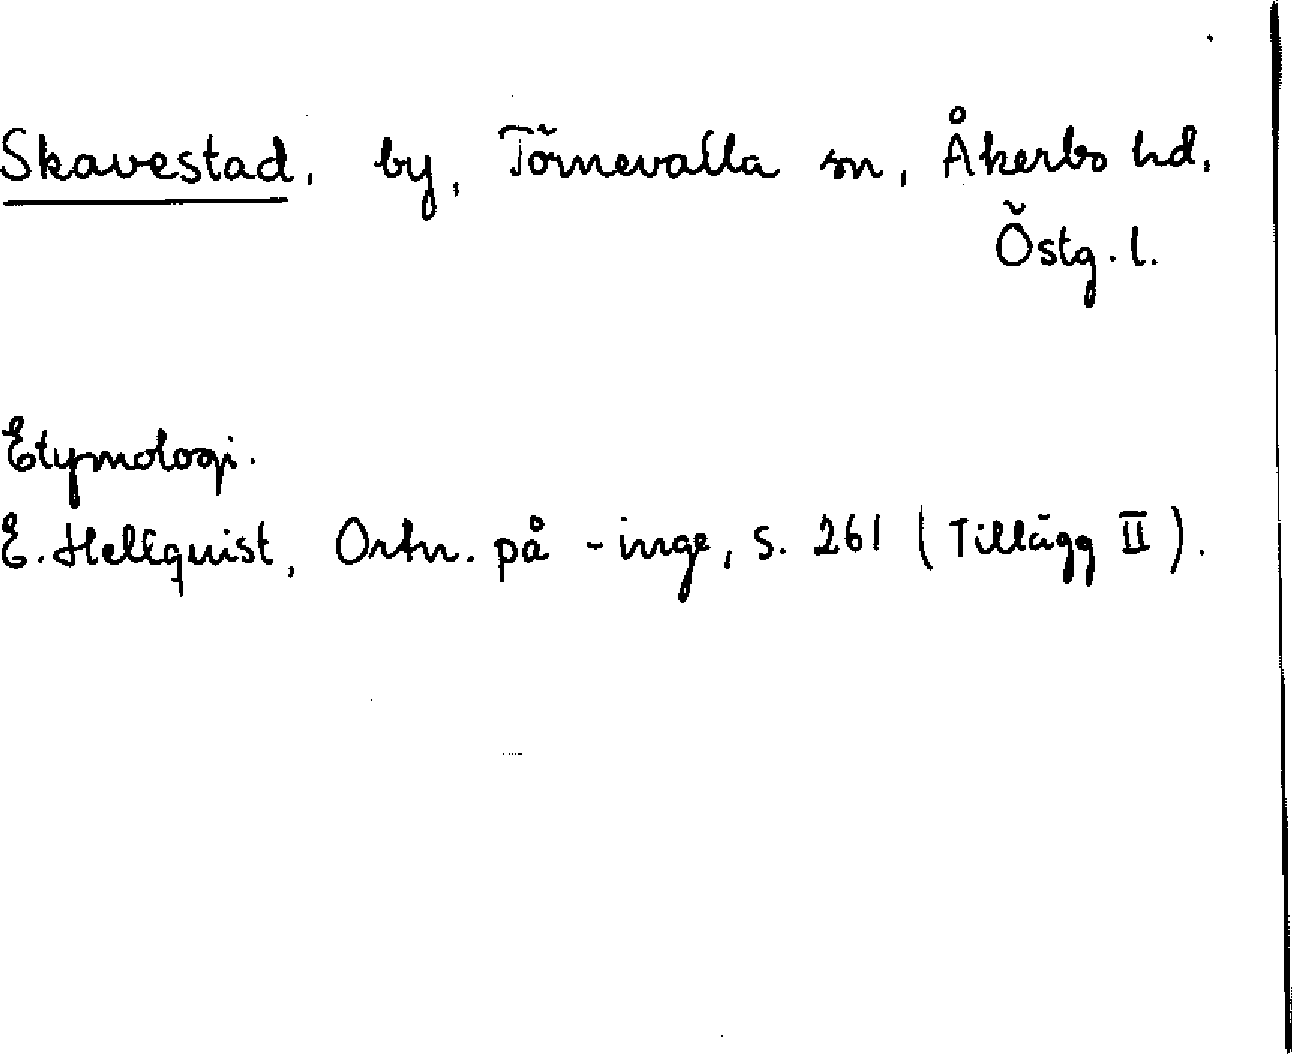 Skavestad, by, Törnevalla sn, Åkerbo hd,
Östg. l.
Etymologi.
E. Hellquist, Ortn. på -inge, s. 261 (Tillägg II).